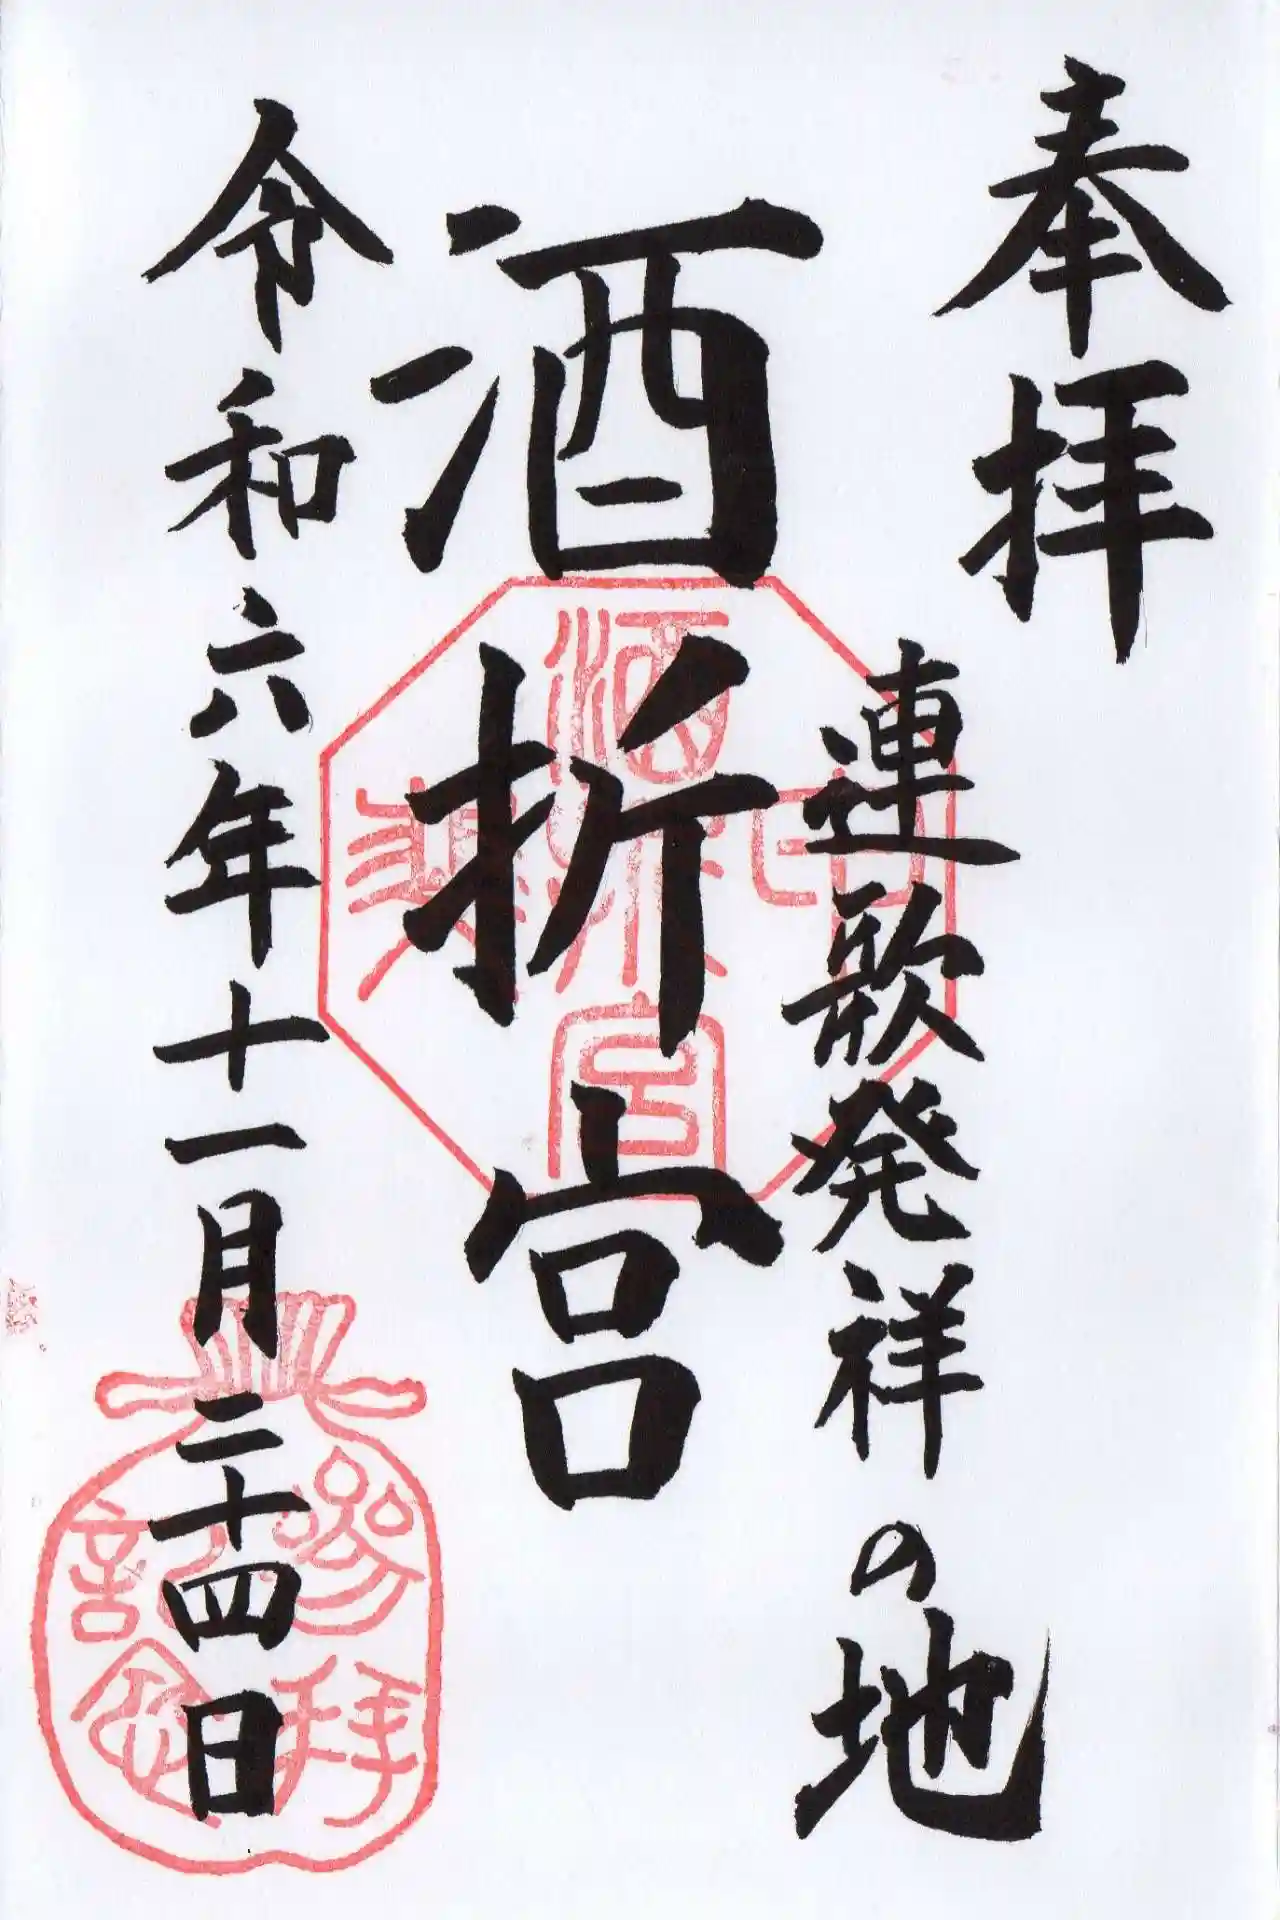 奉拝
連歌発祥の地
酒折宮
令和六年十一月二十四日
酒折宮
参拝
記念